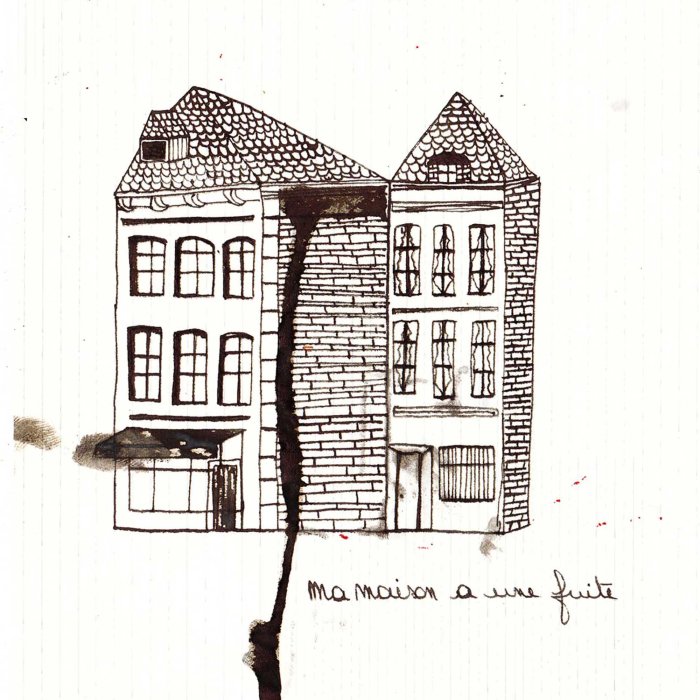 ma maison a une fuite